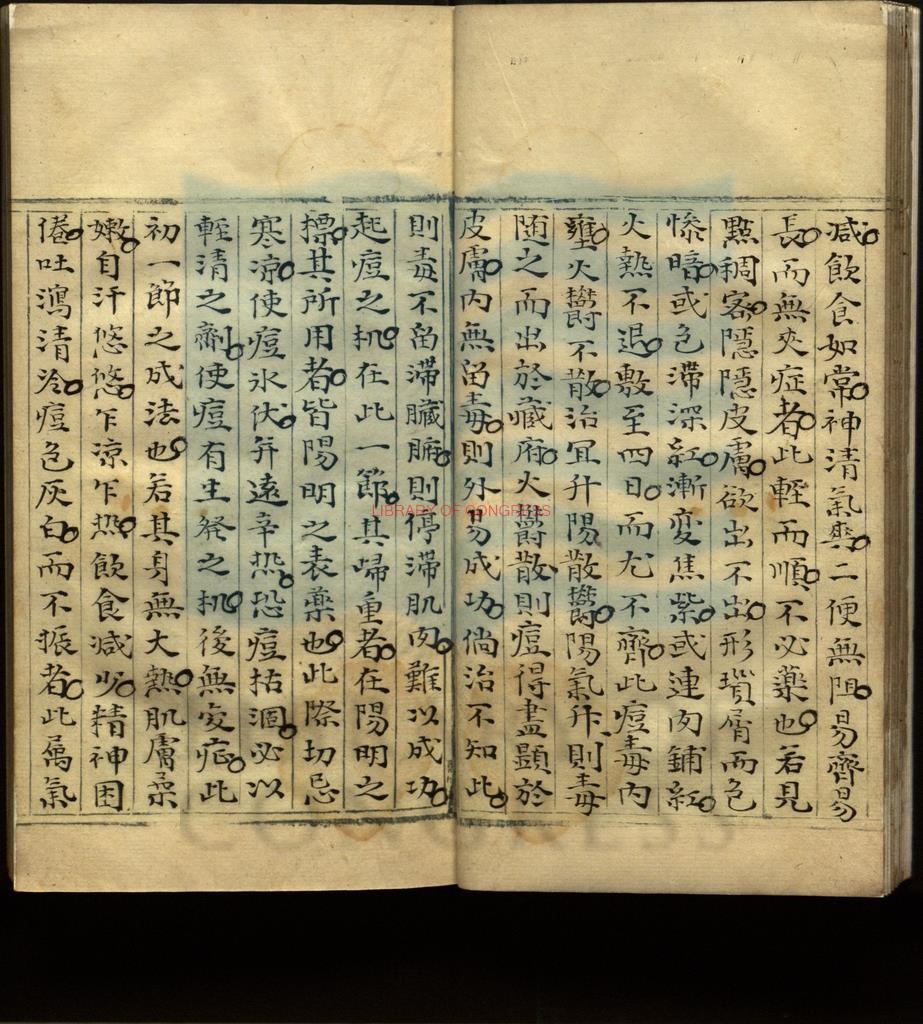 減飲食如常神清氣爽二便無阻易齊易
長而無夾症者此輕而順不必藥也若見
㸃稠客隱隱皮膚欲出不出形瑣屑而色
慘暗或色滯深紅漸变焦紫或連肉鋪紅
火熱不退敷至四日而尤不齊此痘毒內
壅火鬱不散治宜升陽散鬱陽氣升則毒
随之而出於臓府火鬱散則痘得盡顯於
皮膚內無留毒則外易成功倘治不知此
則毒不留滞臓腑則停滞肌肉難以成功
起痘之机在此一節其㷌重者在陽明之
摽其所用者皆陽明之表藥也此際切忌
寒涼使痘氷伏并遠辛热恐痘枯涸必以
輕清之劑使痘有生發之机後無变症此
初一節之成法也若其身無大熱肌膚柔
嫩自汗悠悠乍凉乍热飲食减少精神困
倦吐瀉清冷痘色灰白而不振者此属氣
LIBRARY OF CONGRESS